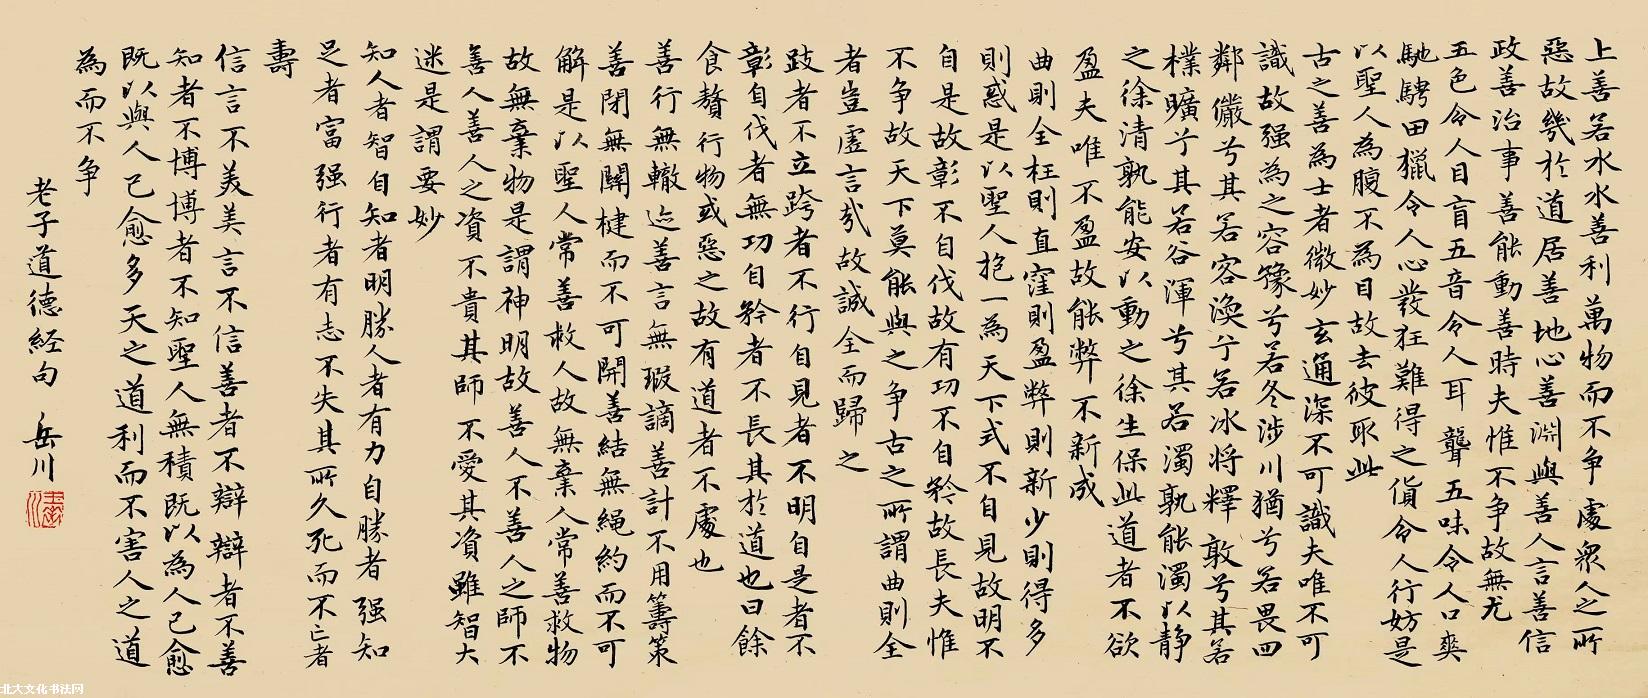 上善若水水善利萬物而不争處衆人之所
惡故幾於道居善地心善淵與善人言善信
政善治事善能動善時夫惟不争故無尤
五色令人目盲五音令人耳聾五味令人口爽
馳騁田獵令人心發狂難得之貨令人行妨是
以聖人為腹不為目故去彼取此
古之善為士者微妙玄通深不可識夫唯不可
識故强為之容豫兮若冬涉川猶兮若畏四
鄰儼兮其若容渙兮若冰将釋敦兮其若
樸曠兮其若谷渾兮其若濁孰能濁以静
之徐清孰能安以動之徐生保此道者不欲
盈夫唯不盈故能弊不新成
曲則全枉則直窪則盈弊則新少則得多
則惑是以聖人抱一為天下式不自見故明不
自是故彰不自伐故有功不自矜故長夫惟
不争故天下莫能與之争古之所謂曲則全
者豈虚言哉故誠全而歸之
跂者不立跨者不行自見者不明自是者不
彰自伐者無功自矜者不長其於道也曰餘
食贅行物或惡之故有道者不處也
善行無轍迹善言無瑕謫善計不用籌策
善閉無關楗而不可開善結無繩約而不可
解是以聖人常善救人故無棄人常善救物
故無棄物是謂神明故善人不善人之師不
善人善人之資不貴其師不愛其資雖智大
迷是謂要妙
知人者智自知者明勝人者有力自勝者强知
足者富强行者有志不失其所久死而不亡者
壽
信言不美美言不信善者不辯辯者不善
知者不博博者不知聖人無積既以為人己愈
既以與人己愈多天之道利而不害人之道
為而不争
老子道德経句 岳川
北大文化书法网